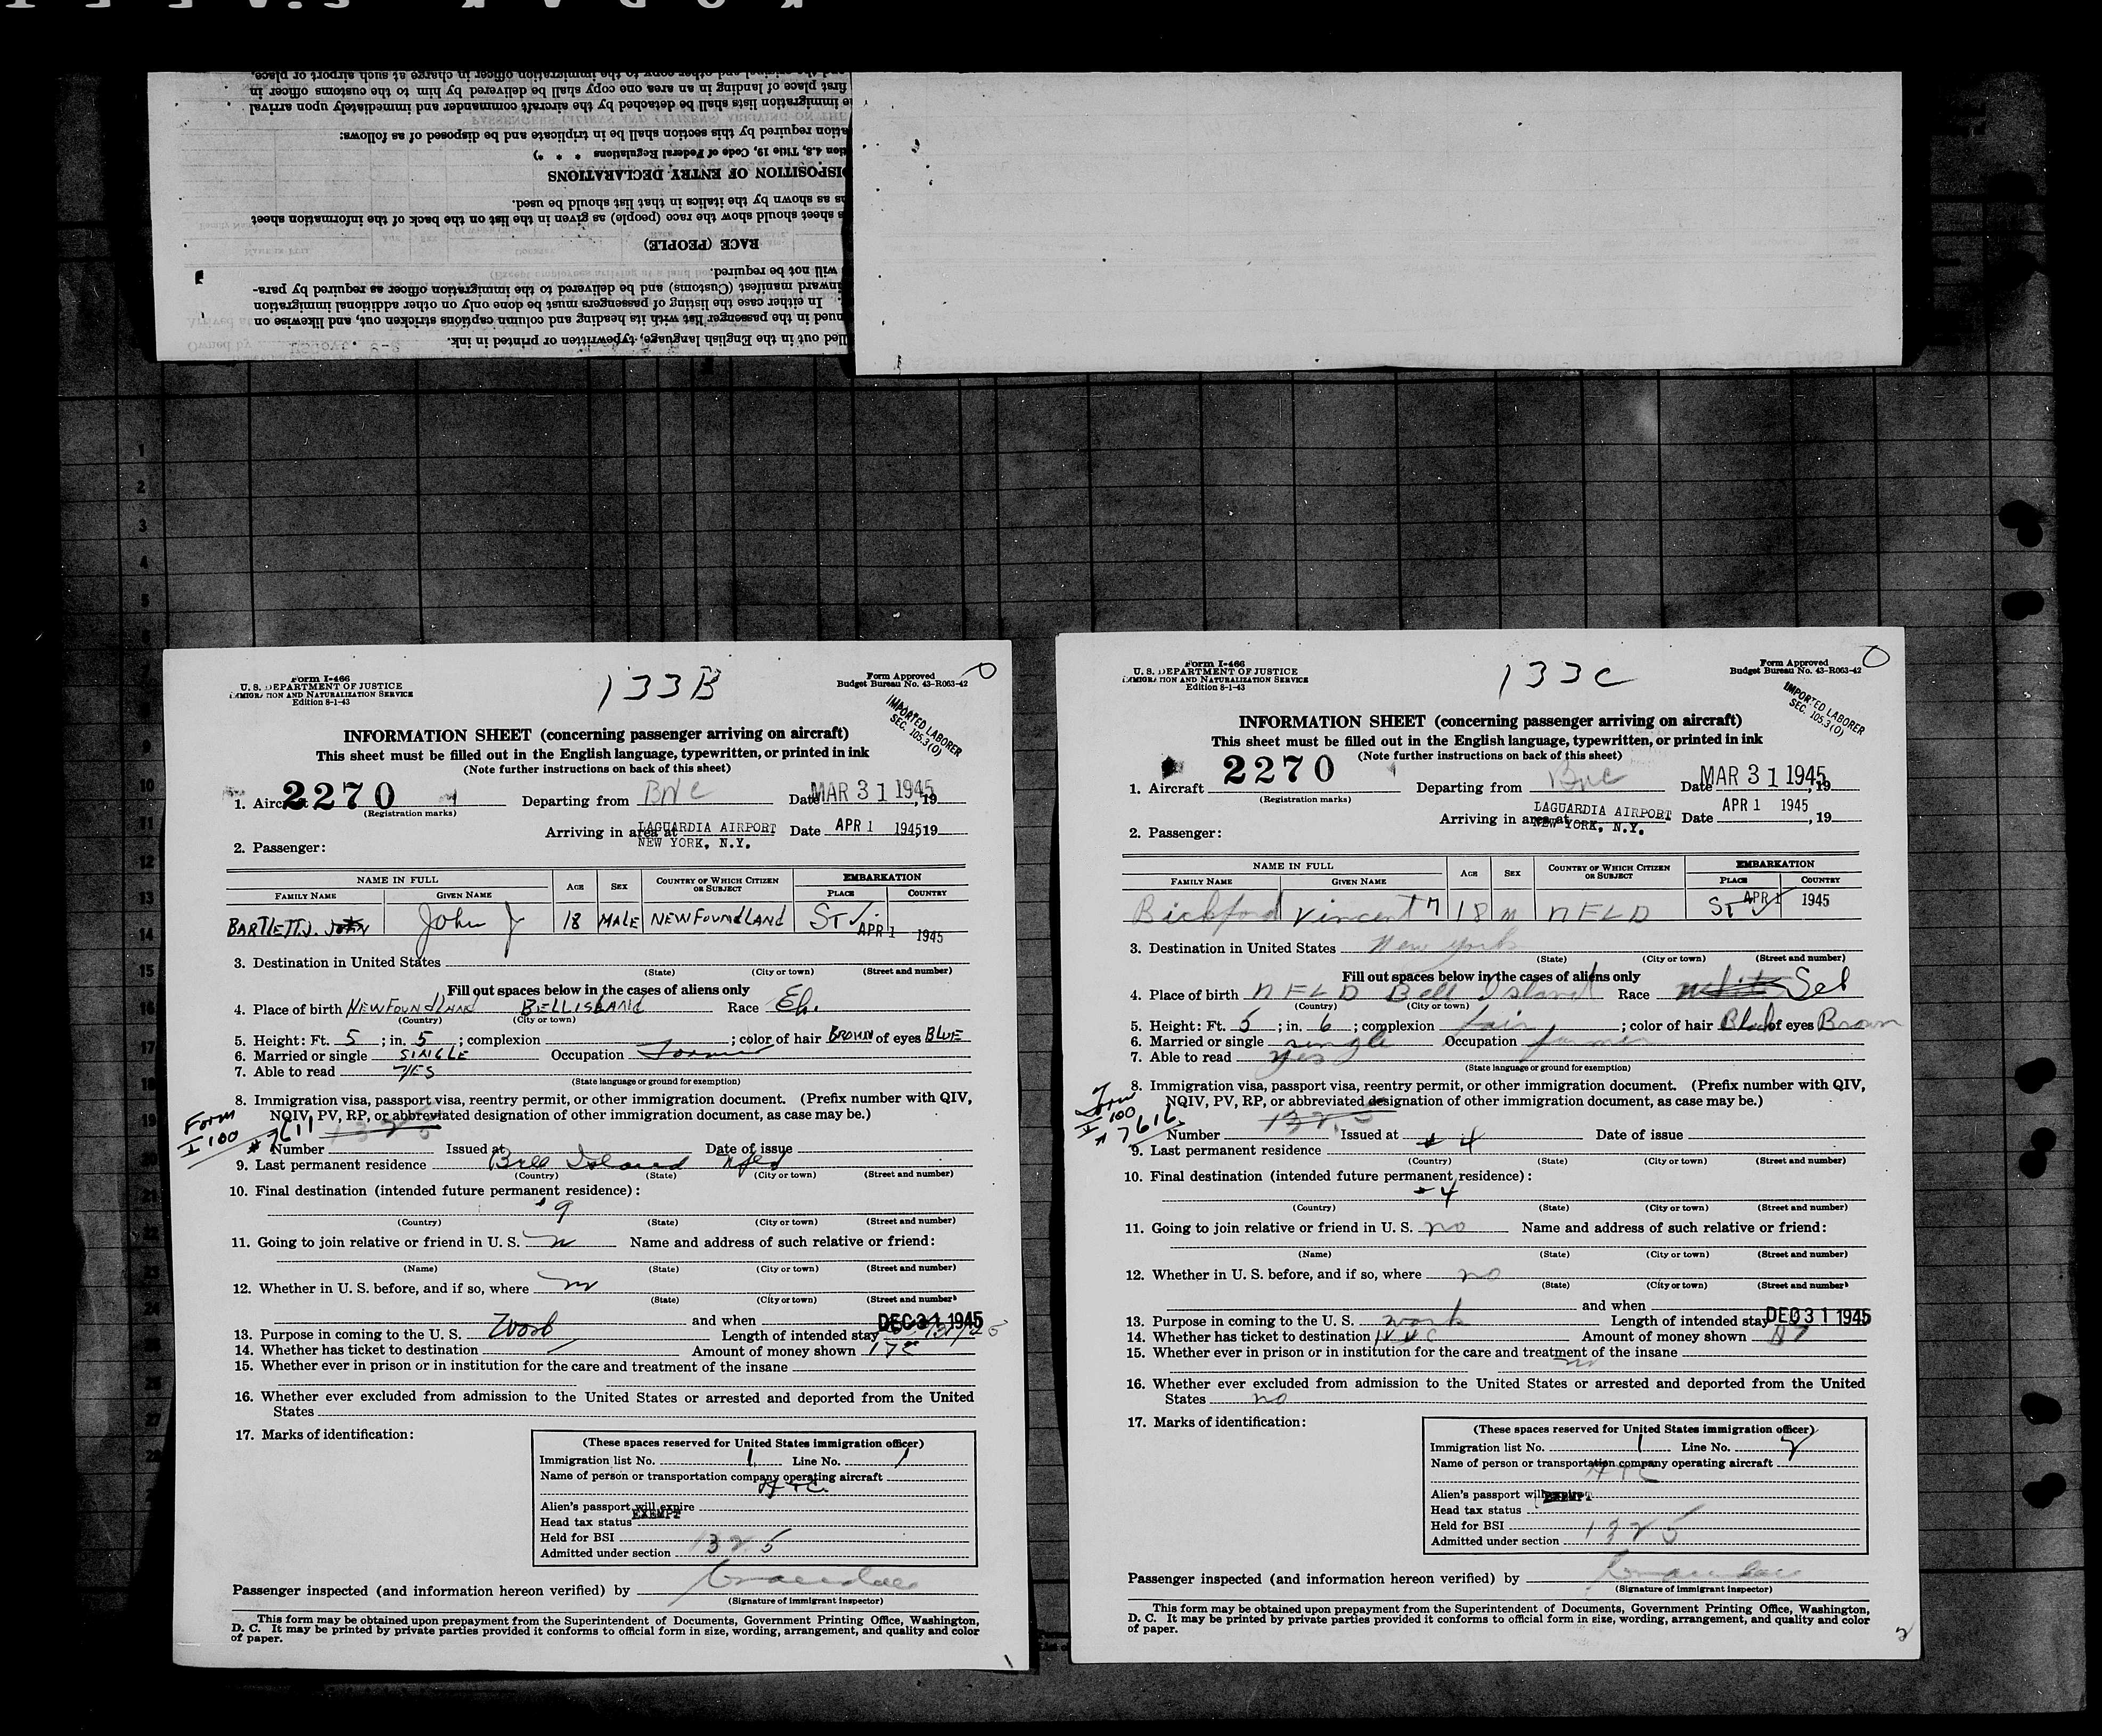 and the original and other copy to the immigration officer in charge at such airport or place.
first place of landing in an area one copy shall be delivered by him to the customs officer in
immigration lists shall be detached by the aircraft commander and immediately upon arrival
ation required by this section shall be in triplicate and be disposed of as follows:
tion 4.8, Title 19, Code of Federal Regulations * * *)
DISPOSITION OF ENTRY DECLARATIONS
as shown by the italics in that list should be used.
s sheet should show the race (people) as given in the list on the back of the information sheet
RACE (PEOPLE)
will not be required.
inward manifest (Customs) and be delivered to the immigration officer as required by para-
In either case the listing of passengers must be done only on other additional immigration
nued in the passenger list with its heading and column captions stricken out, and likewise on
lled out in the English language, typewritten or printed in ink.
1
2
3
4
5
6
7
8
9
10
11
12
13
14
15
16
17
18
19
20
21
22
23
24
27
Form I-466
U. S. DEPARTMENT OF JUSTICE
IMMIGRATION AND NATURALIZATION SERVICE
Edition 8-1-43
133B
Form Approved
Budget Bureau No. 43-R063-42
0
IMPORTED LABORER
SEC. 105.3(O)
INFORMATION SHEET (concerning passenger arriving on aircraft)
This sheet must be filled out in the English language, typewritten, or printed in ink
(Note further instructions on back of this sheet)
1. Aircraft 2270 Departing from BNC Date MAR 31 1945, 19
(Registration marks)
Arriving in area at LAGUARDIA AIRPORT NEW YORK, N.Y. Date APR 1 1945 19
2. Passenger:
NAME IN FULL AGE SEX COUNTRY OF WHICH CITIZEN OR SUBJECT EMBARKATION
FAMILY NAME GIVEN NAME PLACE COUNTRY
BARTLETT J. JOHN John J 18 MALE NEWFOUNDLAND ST J. APR 1 1945
3. Destination in United States
(State) (City or town) (Street and number)
Fill out spaces below in the cases of aliens only
4. Place of birth NEWFOUNDLAND BELLISLAND Race Eh.
(Country) (City or town)
5. Height: Ft. 5; in. 5; complexion ; color of hair BROWN of eyes BLUE
6. Married or single SINGLE Occupation
7. Able to read YES
(State language or ground for exemption)
8. Immigration visa, passport visa, reentry permit, or other immigration document. (Prefix number with QIV,
NQIV, PV, RP, or abbreviated designation of other immigration document, as case may be.)
Form
I 100
# 7611
1325
Number Issued at Date of issue
9. Last permanent residence Bell Island Nfld
(Country) (State) (City or town) (Street and number)
10. Final destination (intended future permanent residence):
# 9
(Country) (State) (City or town) (Street and number)
11. Going to join relative or friend in U. S. Name and address of such relative or friend:
(Name) (State) (City or town) (Street and number)
12. Whether in U. S. before, and if so, where
(State) (City or town) (Street and number)
and when
13. Purpose in coming to the U. S. Work Length of intended stay DEC 31 1945
14. Whether has ticket to destination Amount of money shown
15. Whether ever in prison or in institution for the care and treatment of the insane
16. Whether ever excluded from admission to the United States or arrested and deported from the United
States
17. Marks of identification:
(These spaces reserved for United States immigration officer)
Immigration list No. 1 Line No. 1
Name of person or transportation company operating aircraft
ATC
Alien's passport will expire
Head tax status EXEMPT
Held for BSI
Admitted under section 1325
Passenger inspected (and information hereon verified) by
(Signature of immigrant inspector)
This form may be obtained upon prepayment from the Superintendent of Documents, Government Printing Office, Washington,
D. C. It may be printed by private parties provided it conforms to official form in size, wording, arrangement, and quality and color
of paper.
1
Form I-466
U. S. DEPARTMENT OF JUSTICE
IMMIGRATION AND NATURALIZATION SERVICE
Edition 8-1-43
133C
Form Approved
Budget Bureau No. 43-R063-42
0
IMPORTED LABORER
SEC. 105.3(O)
INFORMATION SHEET (concerning passenger arriving on aircraft)
This sheet must be filled out in the English language, typewritten, or printed in ink
(Note further instructions on back of this sheet)
1. Aircraft 2270 Departing from BNC Date MAR 31 1945, 19
(Registration marks)
Arriving in area at LAGUARDIA AIRPORT NEW YORK, N.Y. Date APR 1 1945, 19
2. Passenger:
NAME IN FULL AGE SEX COUNTRY OF WHICH CITIZEN OR SUBJECT EMBARKATION
FAMILY NAME GIVEN NAME PLACE COUNTRY
Bickford Vincent M 18 M NFLD ST J APR 1 1945
3. Destination in United States New York
(State) (City or town) (Street and number)
Fill out spaces below in the cases of aliens only
4. Place of birth NFLD Bell Island Race white
(Country) (City or town)
5. Height: Ft. 5; in. 6; complexion fair; color of hair Black of eyes Brown
6. Married or single single Occupation farmer
7. Able to read yes
(State language or ground for exemption)
8. Immigration visa, passport visa, reentry permit, or other immigration document. (Prefix number with QIV,
NQIV, PV, RP, or abbreviated designation of other immigration document, as case may be.)
Form
I 100
# 7616
1325
Number Issued at # 4 Date of issue
9. Last permanent residence
(Country) (State) (City or town) (Street and number)
10. Final destination (intended future permanent residence):
# 4
(Country) (State) (City or town) (Street and number)
11. Going to join relative or friend in U. S. no Name and address of such relative or friend:
(Name) (State) (City or town) (Street and number)
12. Whether in U. S. before, and if so, where no
(State) (City or town) (Street and number)
and when
13. Purpose in coming to the U. S. work Length of intended stay DEC 31 1945
14. Whether has ticket to destination Amount of money shown
15. Whether ever in prison or in institution for the care and treatment of the insane
no
16. Whether ever excluded from admission to the United States or arrested and deported from the United
States no
17. Marks of identification:
(These spaces reserved for United States immigration officer)
Immigration list No. 1 Line No. 2
Name of person or transportation company operating aircraft
ATC
Alien's passport will expire
EXEMPT
Head tax status
Held for BSI
Admitted under section 1325
Passenger inspected (and information hereon verified) by
(Signature of immigrant inspector)
This form may be obtained upon prepayment from the Superintendent of Documents, Government Printing Office, Washington,
D. C. It may be printed by private parties provided it conforms to official form in size, wording, arrangement, and quality and color
of paper.
2